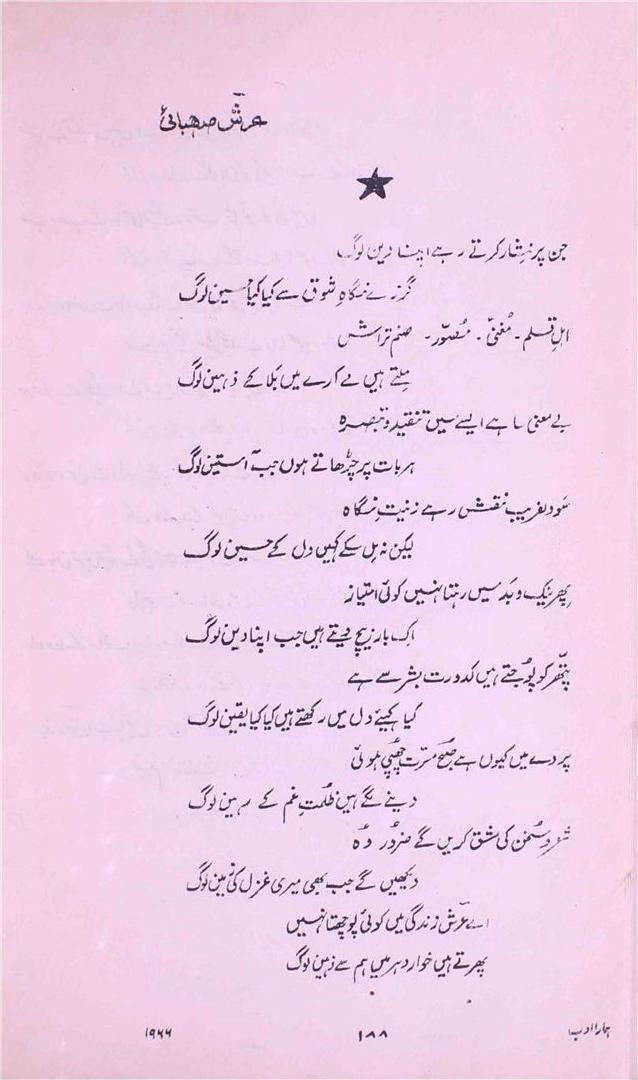 عرشؔ صہبائی
جن پر نثار کرتے رہے اپنا دین لوگ
گزرے نگاہِ شوق سے کیا کیا حسین لوگ
اہلِ قلم۔ مُغنّی۔ مصُوّر۔ صنم تراش
مِلتے ہیں بے کارے میں بَلا کے ذہین لوگ
بے معنی سا ہے ایسے میں تنقید و تبصرہ
ہر بات پر چڑھاتے ہوں جب آستین لوگ
سَو دلفریب نقش رہے زینتِ نگاہ
لیکن نہ مِل سکے کہیں دل کے حسین لوگ
پھر نیک و بَد میں رہتا نہیں کوئی امتیاز
اِک بار بیچ دیتے ہیں جب اپنا دین لوگ
پتّھر کو پُوجتے ہیں کدورت بشر سے ہے
کیا کہیئے دل میں رکھتے ہیں کیا کیا یقین لوگ
پردے میں کیوں ہے صُبحِ مسرّت چھپی ہوئی
دینے لگے ہیں ظُلمتِ غم کے رہین لوگ
شعر و سُخن کی مشق کریں گے ضرُور وُہ
دیکھیں گے جب بھی میری غزل کی زمین لوگ
اے عرشؔ زندگی میں کوئی پوچھتا نہیں
پھرتے ہیں خوار دہر میں ہم سے ذہین لوگ
ہمارا ادب
۱۸۸
۱۹۶۶